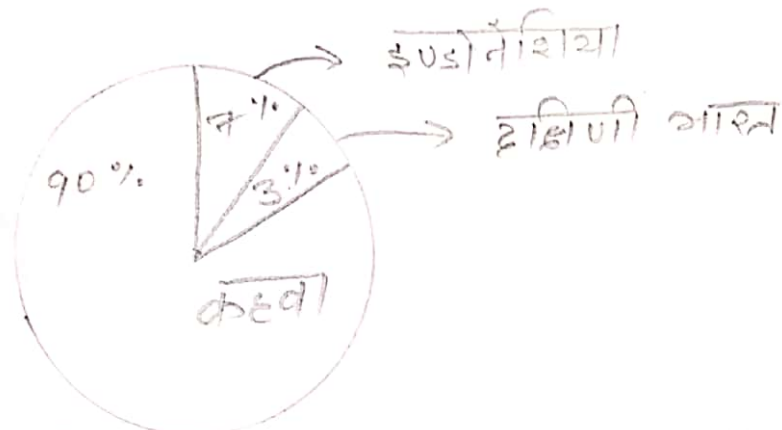 इण्डोनेशिया
7%
दक्षिणी भारत
90%
3%
कहवा